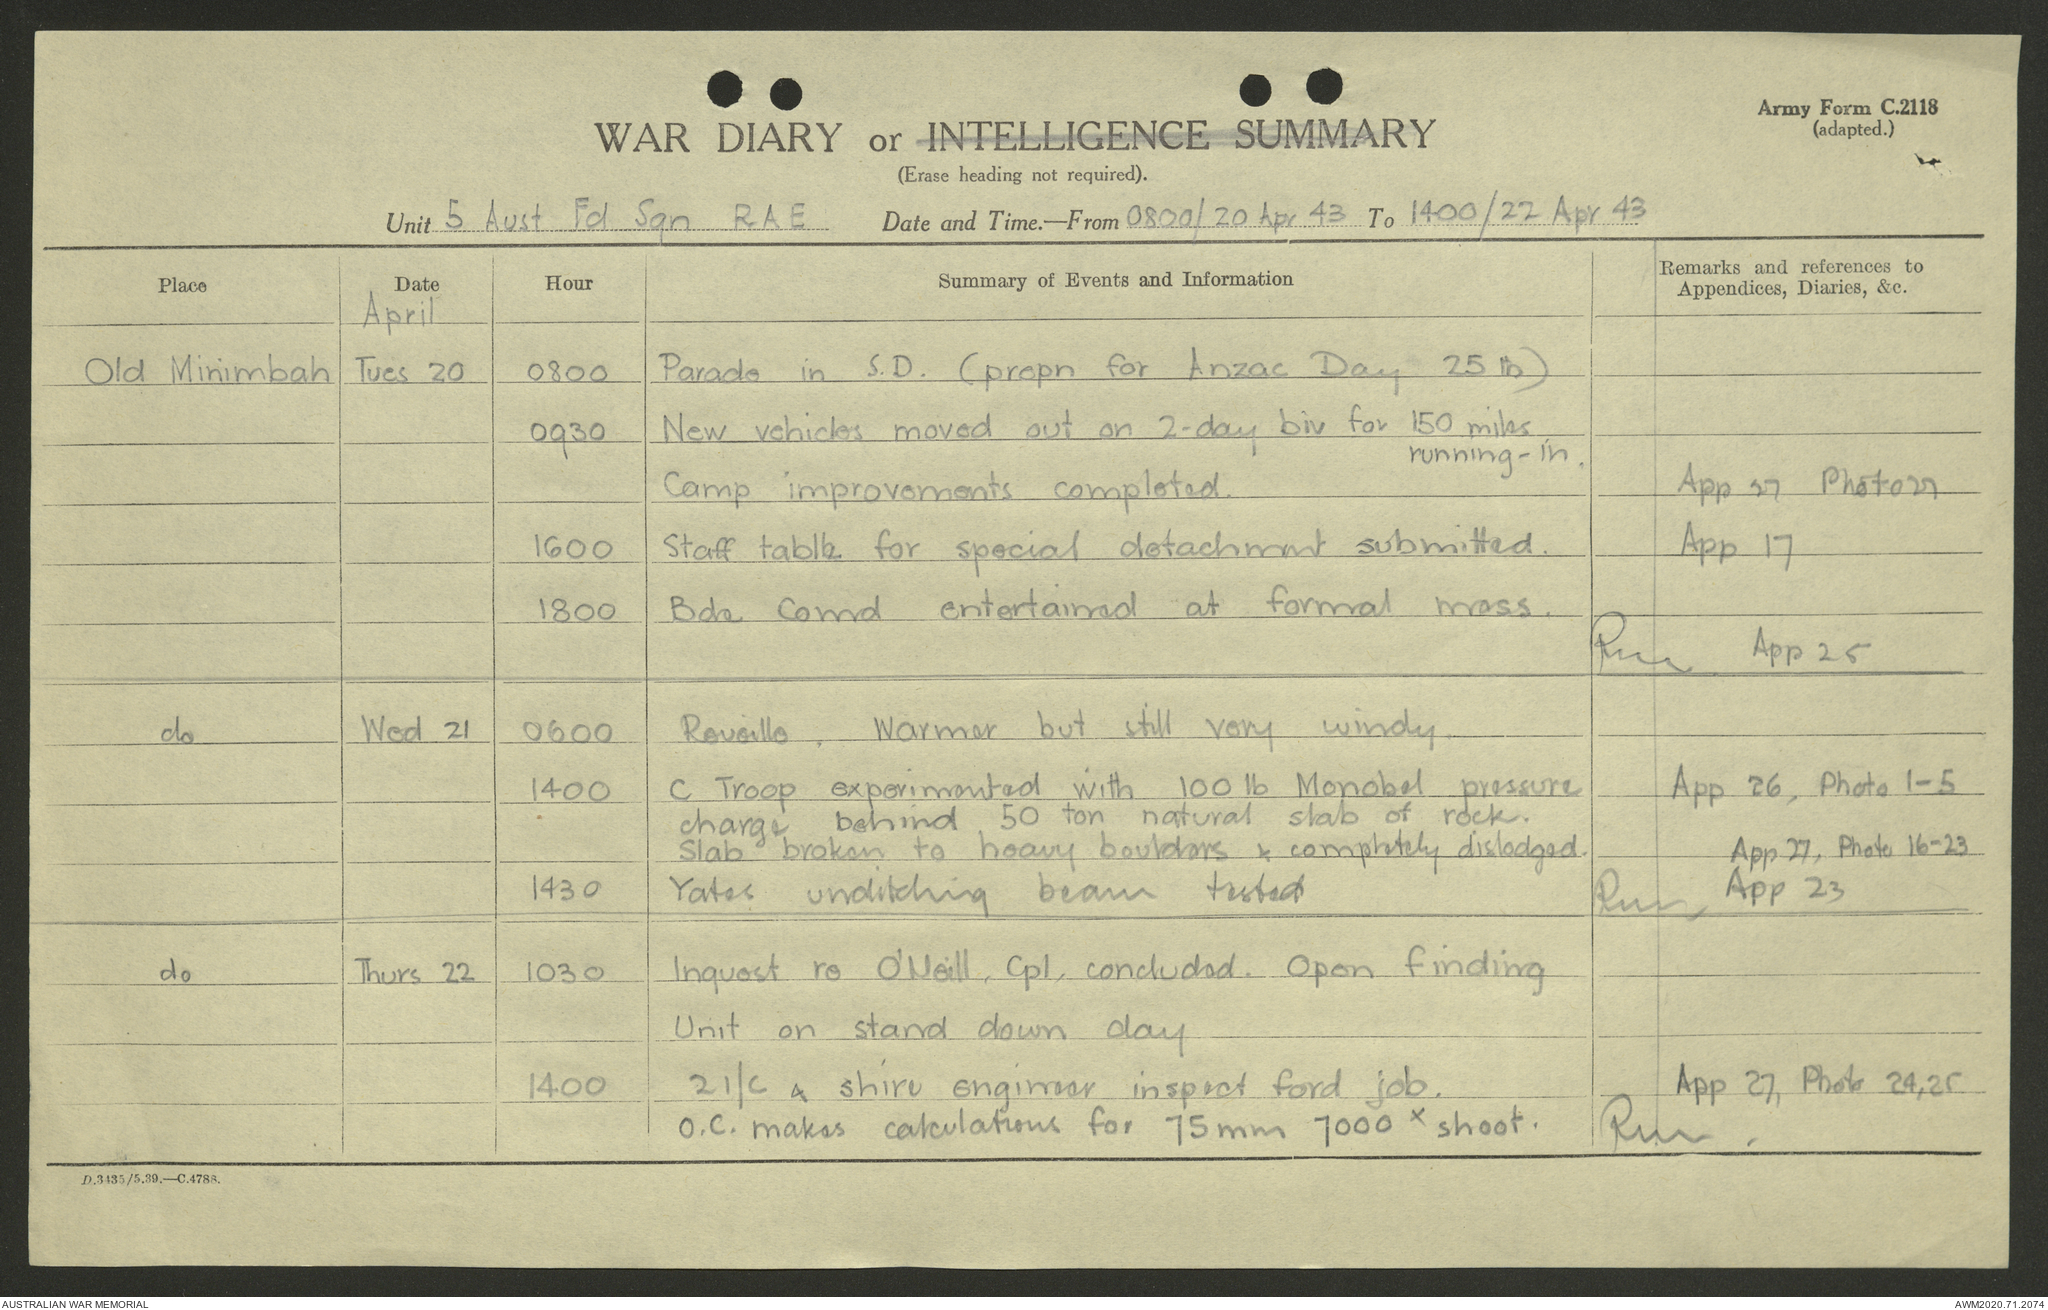 Army Form C.2118
(adapted.)
WAR DIARY or INTELLIGENCE SUMMARY
(Erase heading not required).
Unit 5 Aust Fd Sqn RAE Date and Time.—From 0800/20 Apr 43 To 1400/22 Apr 43
Place Date Hour Summary of Events and Information Remarks and references to
Appendices, Diaries, &c.
April
Old Minimbah Tues 20 0800 Parade in S.D. (prepn for Anzac Day 25th)
0930 New vehicles moved out on 2-day biv for 150 miles
running-in.
Camp improvements completed. App 27 Photo 27
1600 Staff table for special detachmnt submitted. App 17
1800 Bde Comd entertained at formal mess.
App 25
do Wed 21 0600 Reveille. Warmer but still very windy.
1400 C Troop experimented with 100 lb Monobel pressure App 26, Photo 1-5
charge behind 50 ton natural slab of rock.
Slab broken to heavy boulders & completely dislodged. App 27, Photo 16-23
1430 Yates unditching beam tested App 23
do Thurs 22 1030 Inquest re O'Neill, Cpl, concluded. Open finding
Unit on stand down day
1400 2 I/C & shire engineer inspect ford job. App 27, Photo 24,25
O.C. makes calculations for 75mm 7000 x shoot.
D.3435/5.39.—C.4788.
AUSTRALIAN WAR MEMORIAL AWM2020.71.2074